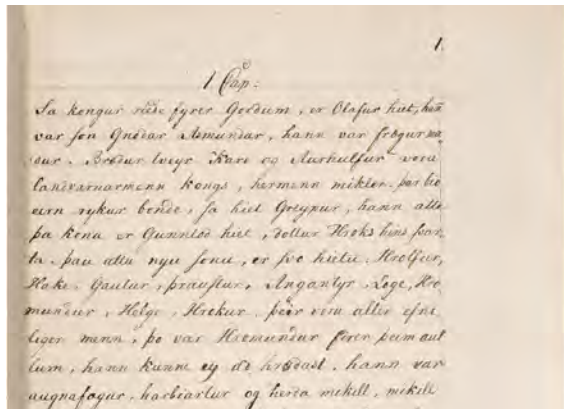 1.
1 Cap:
Sa kongur riede fyrer Gordum, er Olafur hiet, hann
var son Gnodar Asmundar, hann var frægur ma
dur. Brædur tveyr Kare og Aurnulfur voru
landvarnarmenn kongs, hermenn mikler. þar bio
eirn rykur bonde, sa hiet Greypur, hann atte
þa konu er Gunnlod hiet, dottur Hroks hins svar
ta. þau attu nyu sonu, er svo hietu. Hrolfur,
Hake, Gautur, þraustur, Angantyr, Loge, Hro
mundur, Helge, Hrokur. þeir voru aller efne
leger menn, þo var Hromundur fyrer þeim aul
lum, hann kunne ey ad hrædast. hann var
augnafagur, harbiartur og herda mikell, mikell